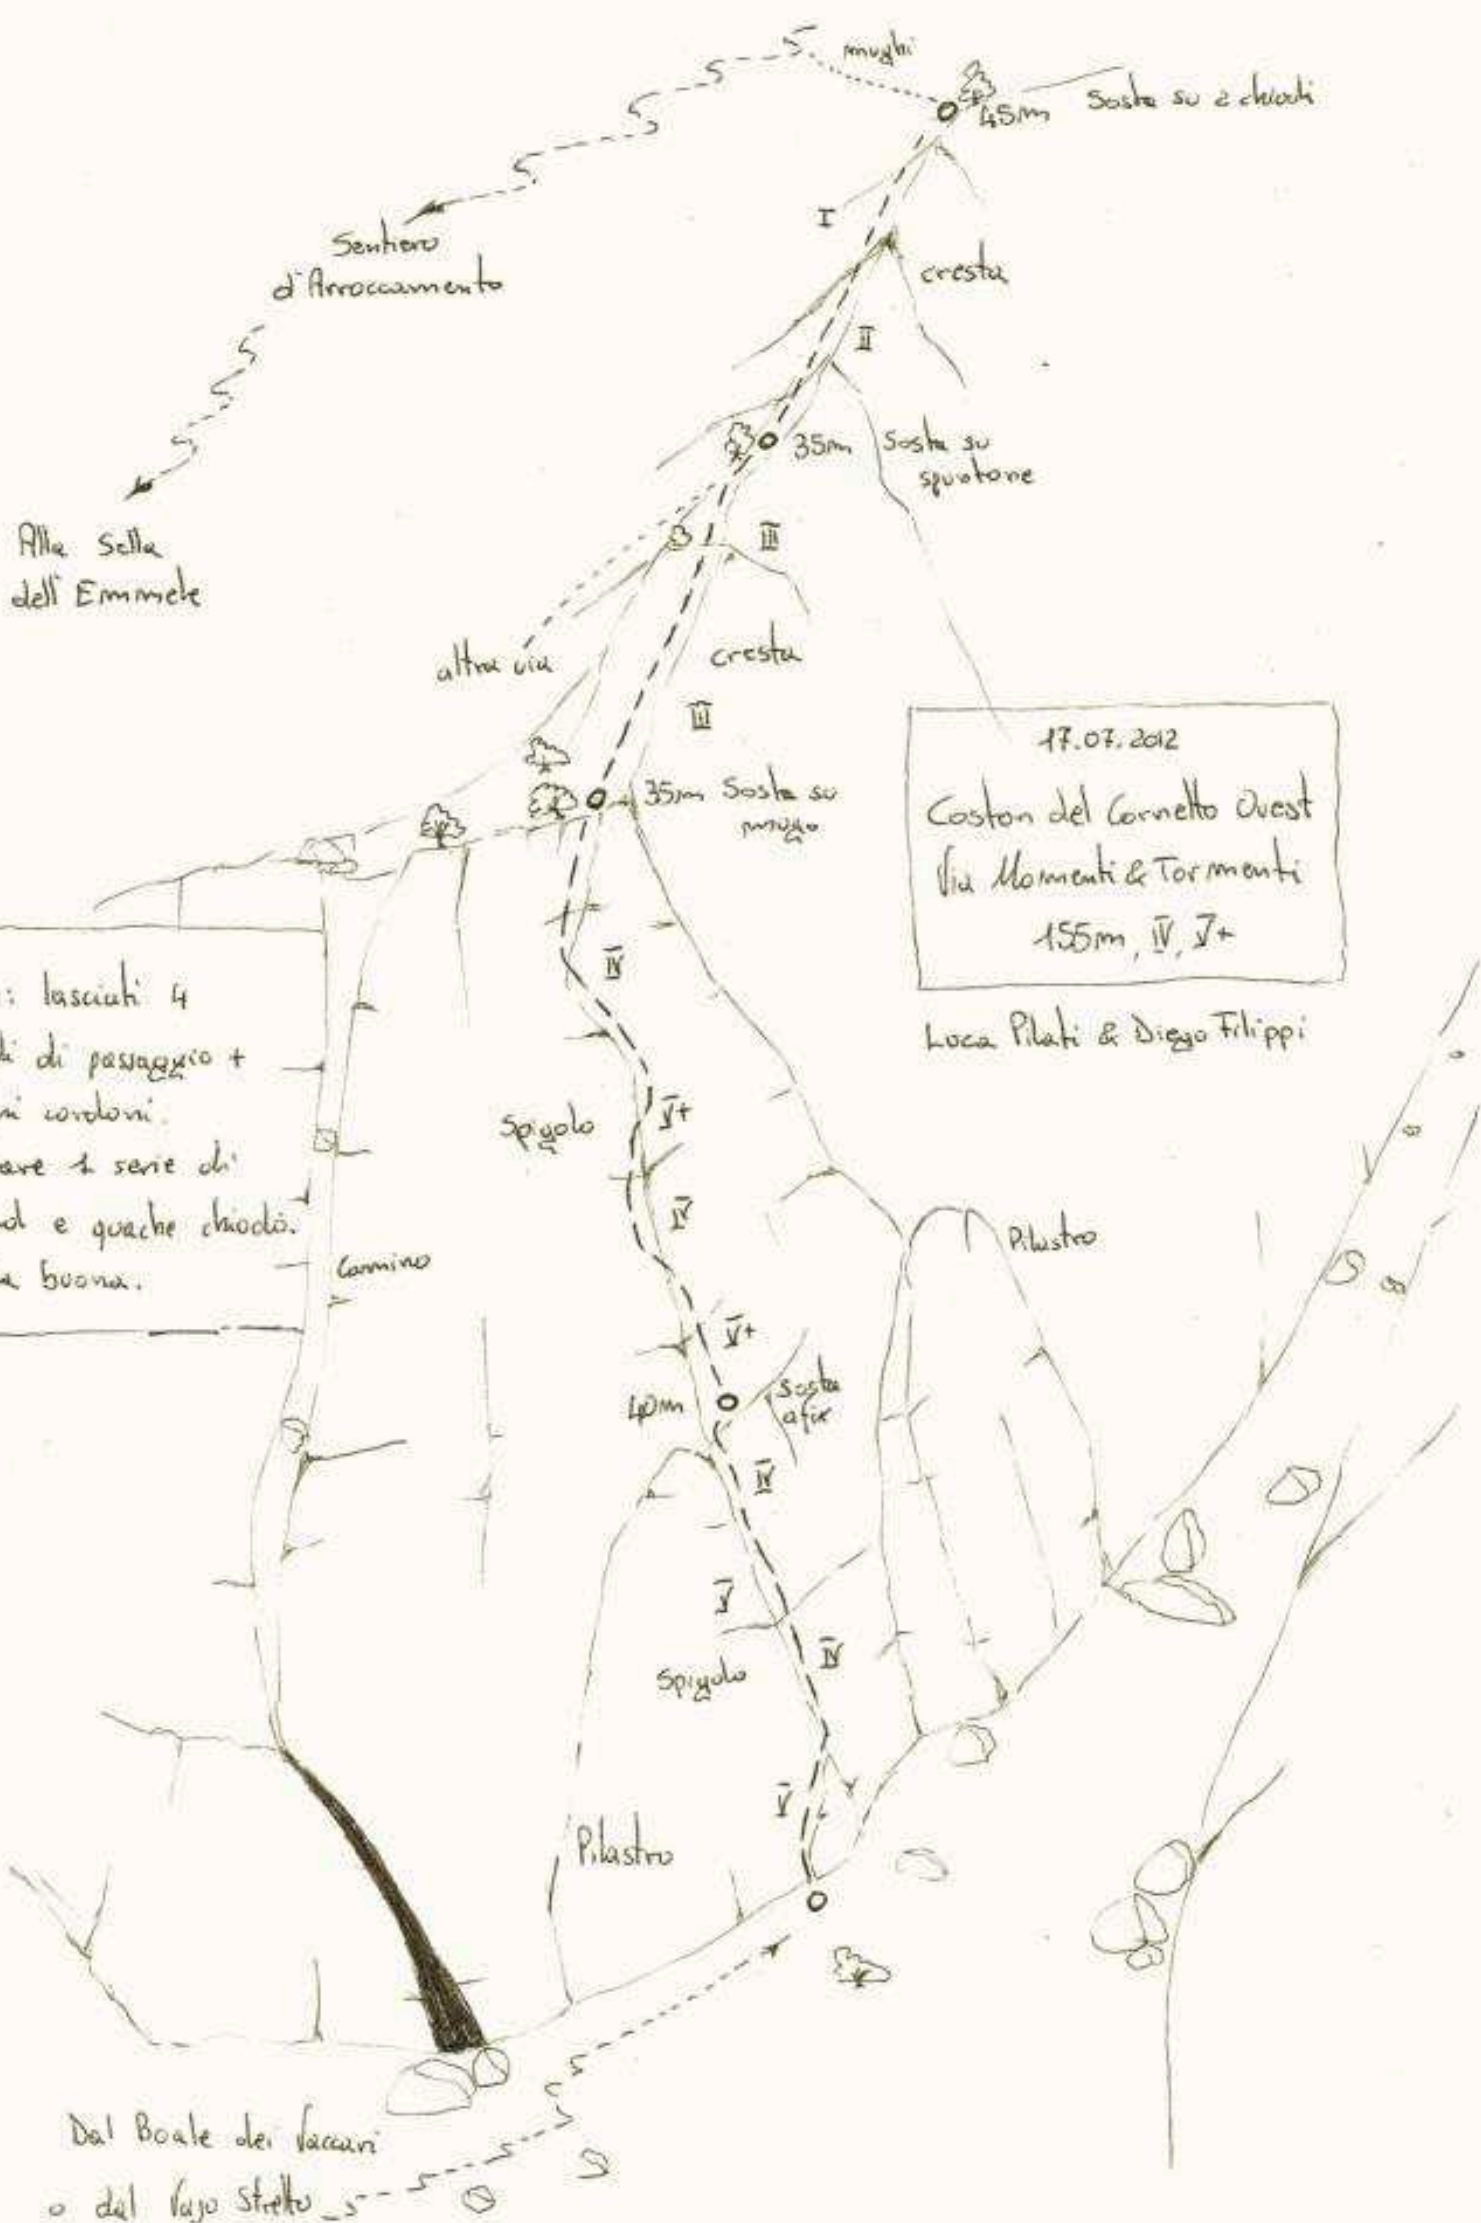 mughi
45m Sosta su 2 chiodi
I
Sentiero
d'Arroccamento
cresta
II
35m Sosta su
spuntone
III
Alla Sella
dell'Emmele
altra via
cresta
III
35m Sosta su
mugo
17.07.2012
Coston del Cornetto Ovest
Via Momenti & Tormenti
155m, IV, V+
Luca Pilati & Diego Filippi
: lasciati 4
di passaggio +
cordoni.
1 serie di
e quache chiodo.
buona.
IV
Spigolo
V+
IV
Camino
Pilastro
V+
40m
Sosta
a fix
IV
V
IV
Spigolo
V
Pilastro
Dal Boale dei Vaccari
o dal Vajo Stretto